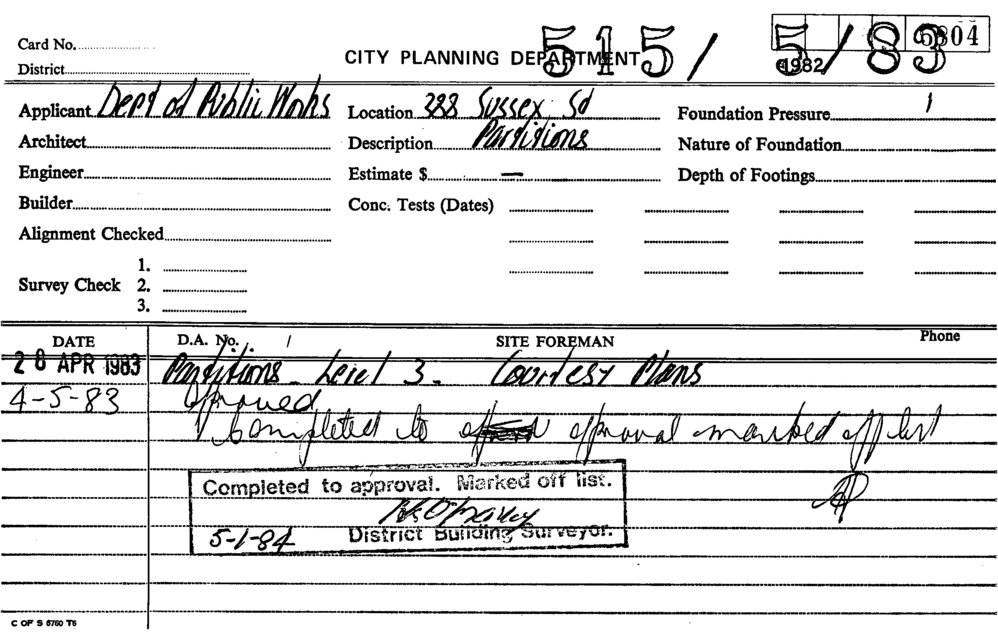 Card No. 5804
CITY PLANNING DEPARTMENT 515/5/83
District 1982/
Applicant Dept of Public Works Location 388 Sussex Sd Foundation Pressure 1
Architect Description Partitions Nature of Foundation
Engineer Estimate $ — Depth of Footings
Builder Conc. Tests (Dates)
Alignment Checked
1.
Survey Check 2.
3.
DATE D.A. No. / SITE FOREMAN Phone
28 APR 1983 Partitions - Level 3. Courtesy Plans
4-5-83 Approved
Completed to approval marked off list
Completed to approval. Marked off list.
5-1-84 District Building Surveyor.
C OF S 5760 T5